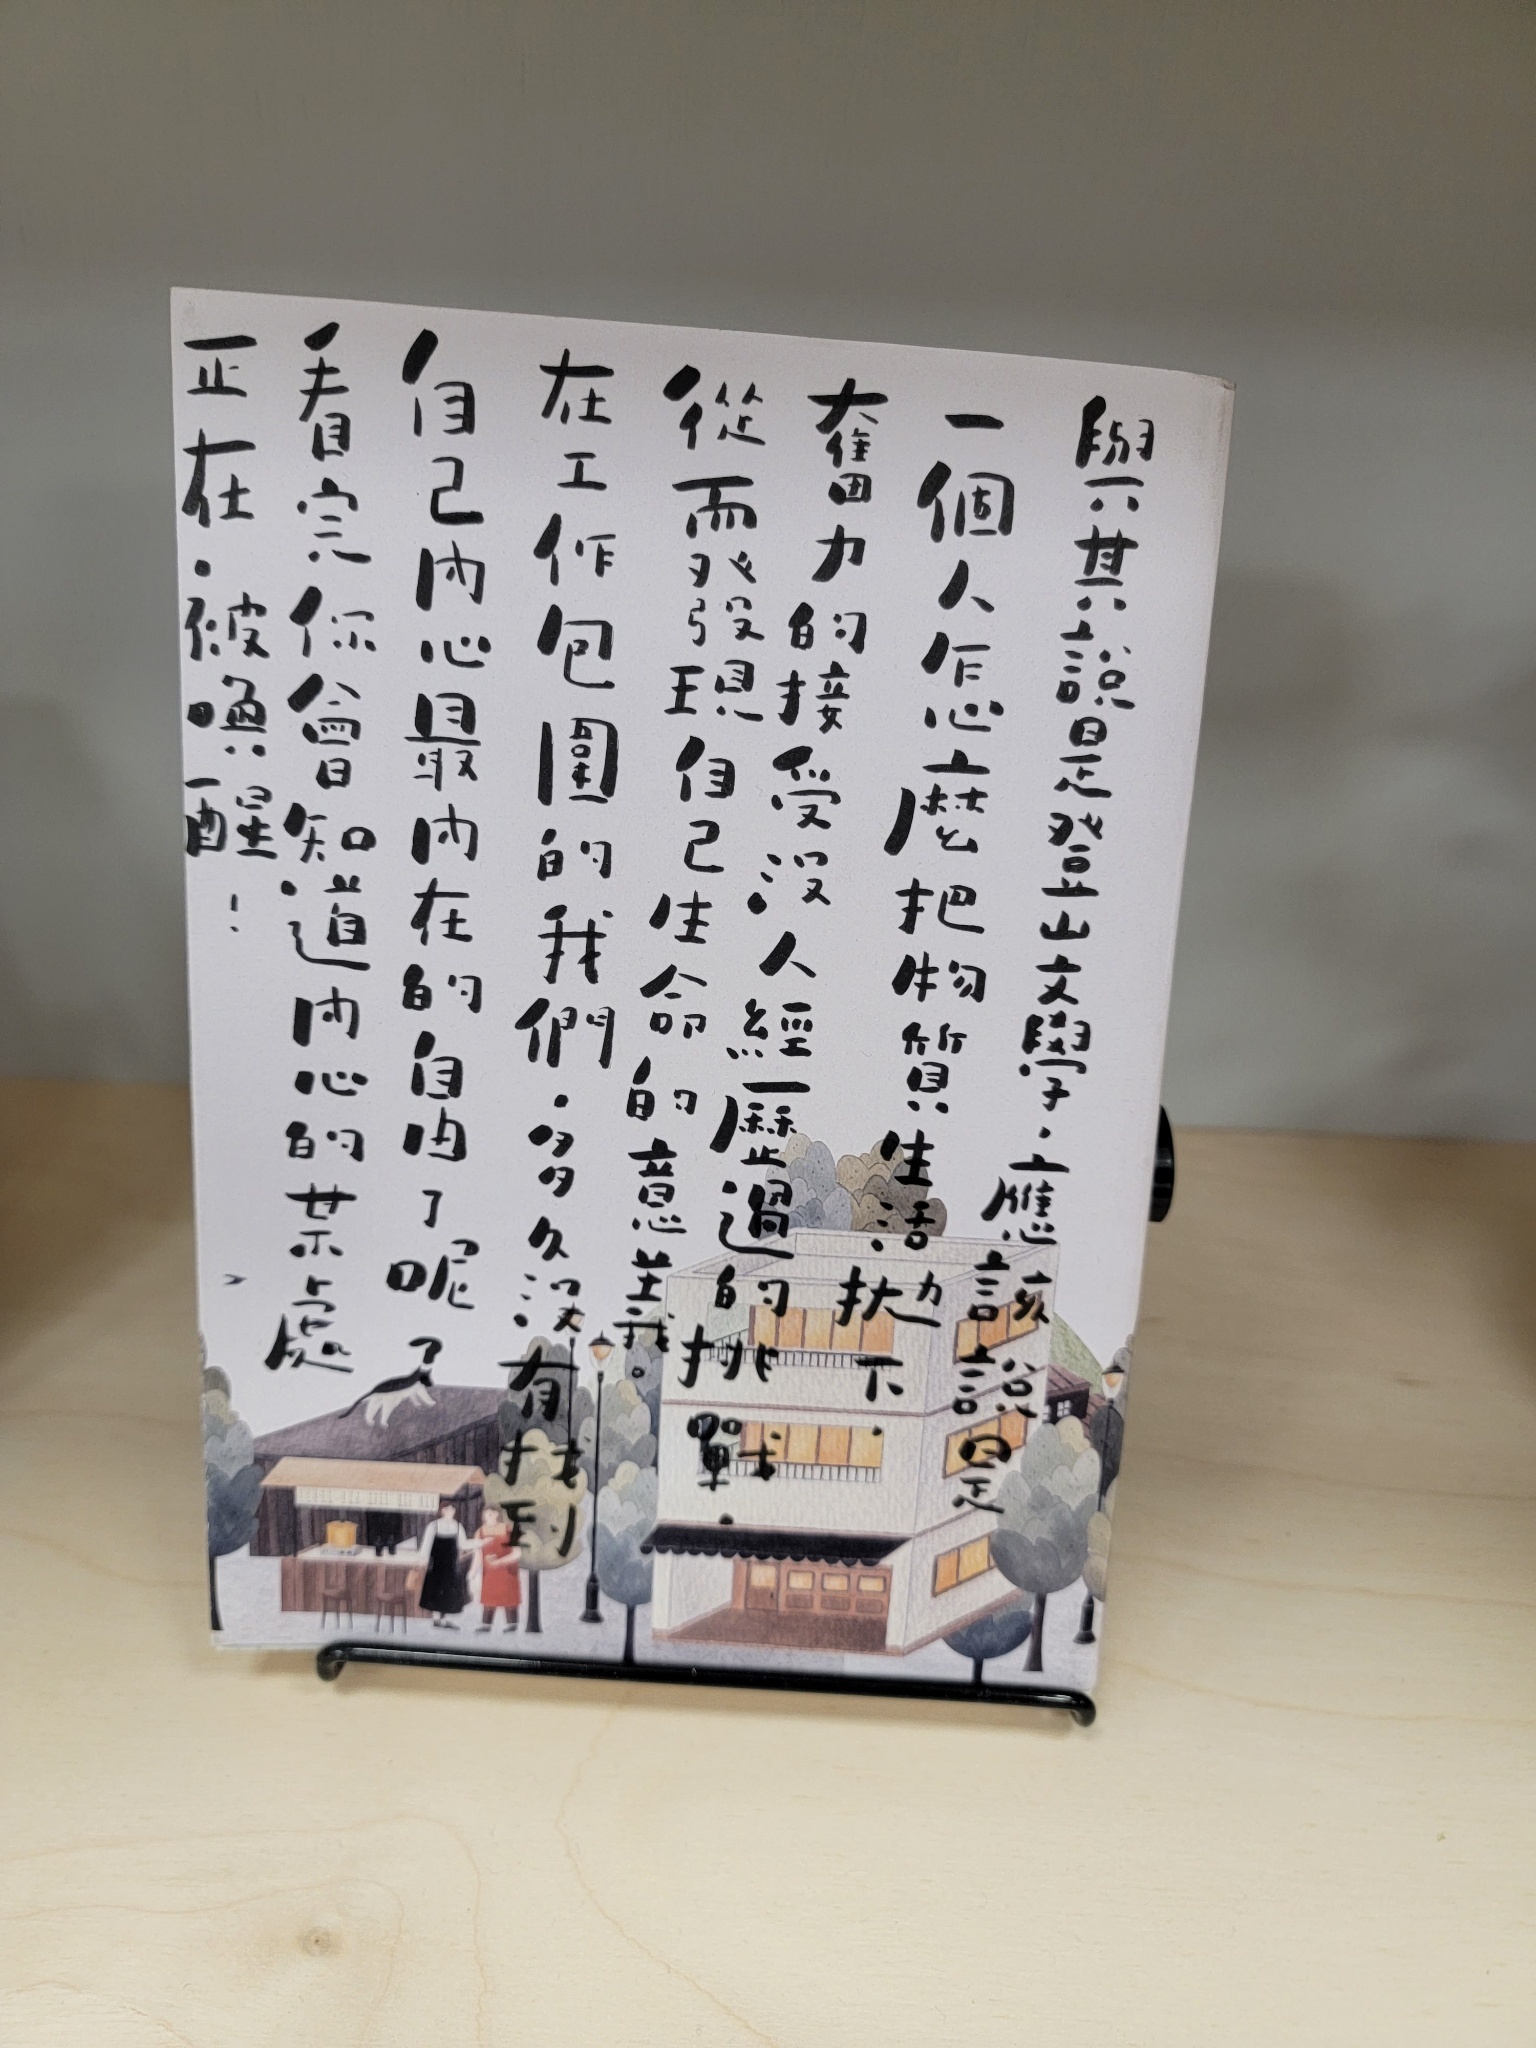 與其說是登山文學，應該說是
一個人怎麼把物質生活拋下，
奮力的接受沒人經歷過的挑戰，
從而發現自己生命的意義。
在工作包圍的我們，多久沒有找到
自己內心最內在的自由了呢？
看完你會知道內心的某處，
正在，被喚醒！